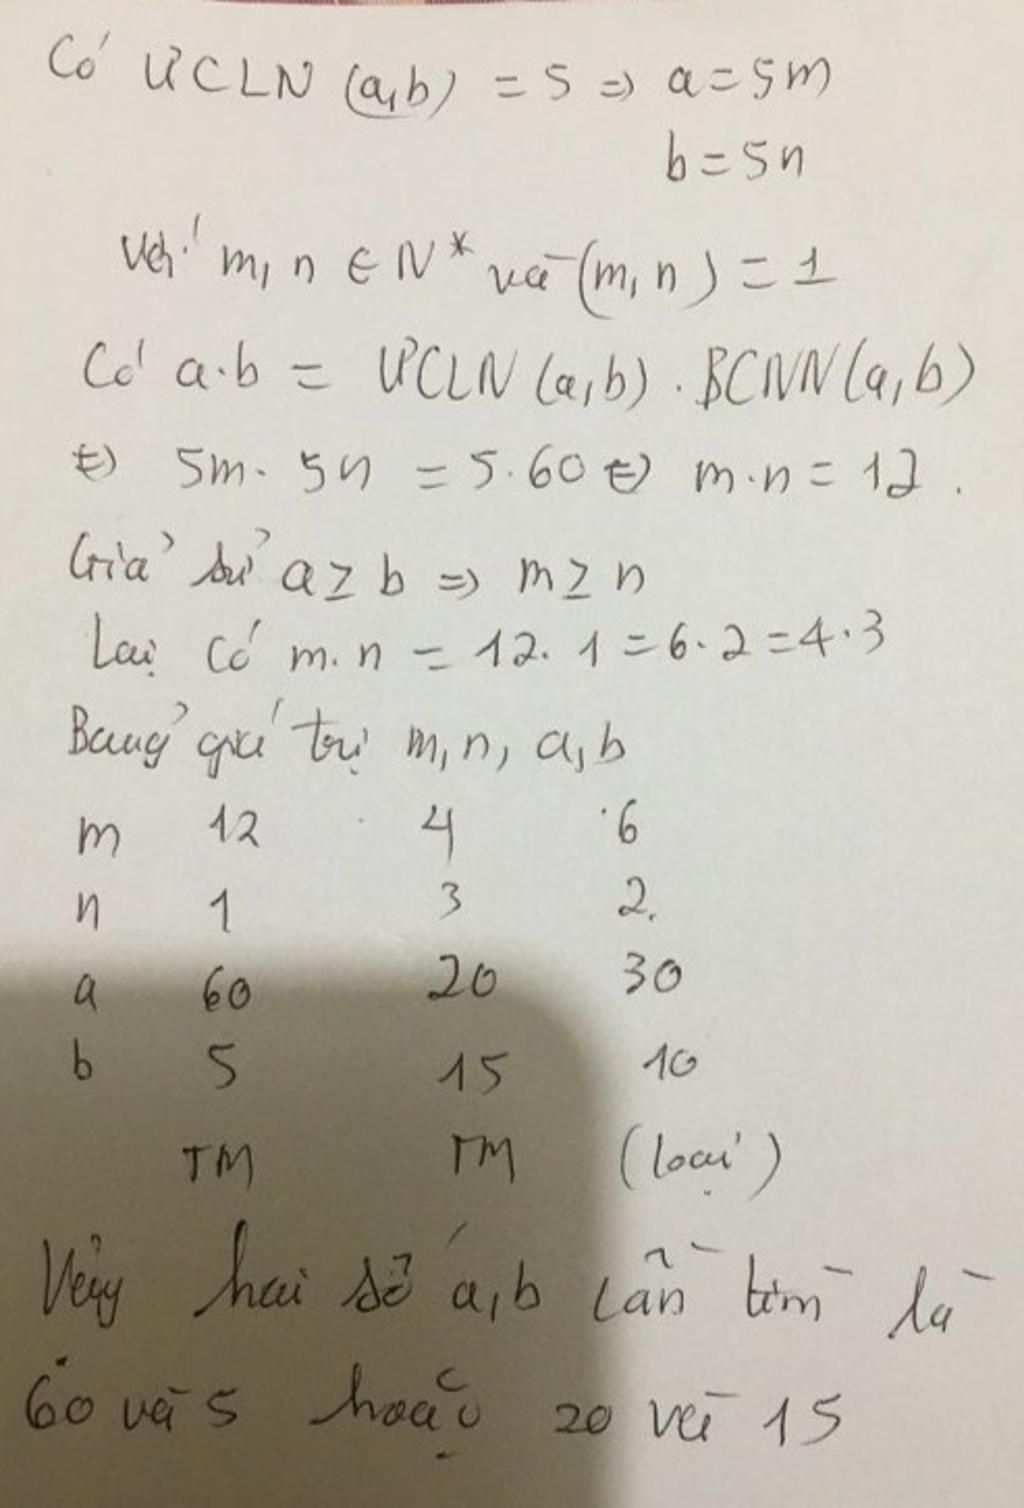 Có ƯCLN (a,b) = 5 => a = 5m
b = 5n
Với m, n ∈ N* và (m, n) = 1
Có a.b = ƯCLN (a,b) . BCNN (a,b)
<=> 5m. 5n = 5.60 <=> m.n = 12.
Giả sử a ≥ b => m ≥ n
Lại có m.n = 12.1 = 6.2 = 4.3
Bảng giá trị m, n, a, b
m 12 4 6
n 1 3 2.
a 60 20 30
b 5 15 10
TM TM (loại)
Vậy hai số a,b cần tìm là
60 và 5 hoặc 20 và 15